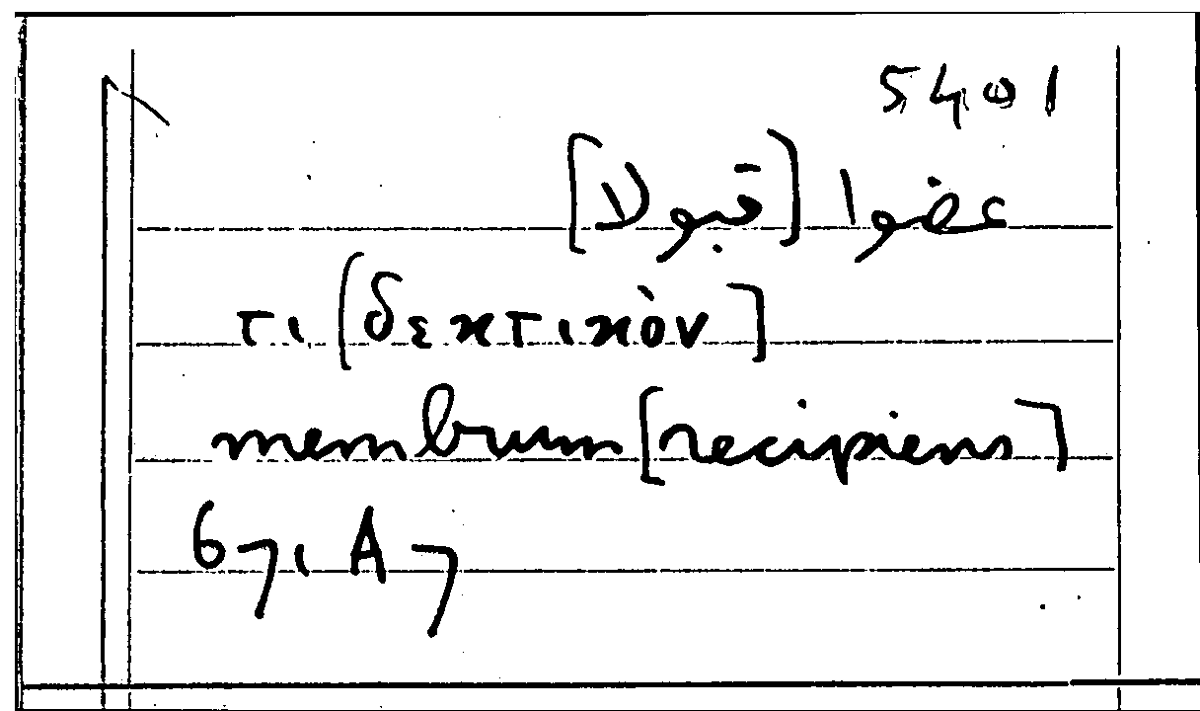 5401
عضوا [قبولا]
τι [δεκτικὸν]
membrum [recipiens]
67, A 7